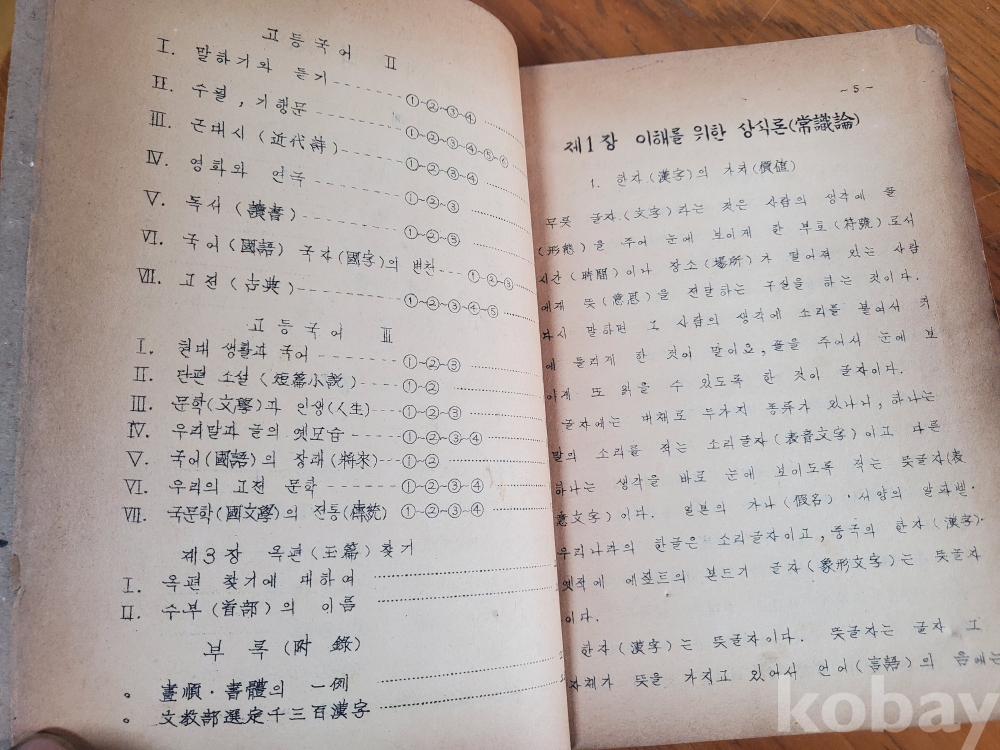 고등국어 Ⅱ
Ⅰ. 말하기와 듣기 ①~②~③~④
Ⅱ. 수필, 기행문 ①~②~③~④~⑤~⑥
Ⅲ. 근대시 (近代詩) ①~②~③~④
Ⅳ. 영화와 연극 ①~②~③
Ⅴ. 독서 (讀書) ①~②~③
Ⅵ. 국어(國語) 국자(國字)의 변천 ①~②~③
Ⅶ. 고전 (古典) ①~②~③~④~⑤
고등국어 Ⅲ
Ⅰ. 현대 생활과 국어 ①~②~③
Ⅱ. 단편 소설 (短篇小説) ①~②
Ⅲ. 문학(文學)과 인생(人生) ①~②~③
Ⅳ. 우리말과 글의 옛모습 ①~②~③~④
Ⅴ. 국어(國語)의 장래(將来) ①~②
Ⅵ. 우리의 고전 문학 ①~②~③~④
Ⅶ. 국문학(國文學)의 전통(傳統) ①~②~③~④
제3장 옥편(玉篇) 찾기
Ⅰ. 옥편 찾기에 대하여
Ⅱ. 수부(首部)의 이름
부록(附錄)
◦ 畫順·書體의 一例
◦ 文敎部選定千三百漢字
- 5 -
제1장 이해를 위한 상식론(常識論)
1. 한자(漢字)의 가치(價值)
무릇 글자(文字)라는 것은 사람의 생각에 꼴
(形態)을 주어 눈에 보이게 한 부호(符號)로서
시간(時間)이나 장소(場所)가 떨어져 있는 사람
에게 뜻(意思)을 전달하는 구실을 하는 것이다.
다시 말하면 그 사람의 생각에 소리를 붙여서 귀
에 들리게 한 것이 말이요, 꼴을 주어서 눈에 보
이게 또 읽을 수 있도록 한 것이 글자이다.
글자에는 대체로 두가지 종류가 있나니, 하나는
말의 소리를 적는 소리글자(表音文字)이고 다른
하나는 생각을 바로 눈에 보이도록 적는 뜻글자(表
意文字)이다. 일본의 가나(假名)·서양의 알파벧·
우리나라의 한글은 소리글자이고, 중국의 한자(漢字)·
옛적에 에짚트의 본뜨기 글자(象形文字)는 뜻글자
이다.
한자(漢字)는 뜻글자이다. 뜻글자는 글자 그
자체가 뜻을 가지고 있어서 언어(言語)의 음에는
kobay